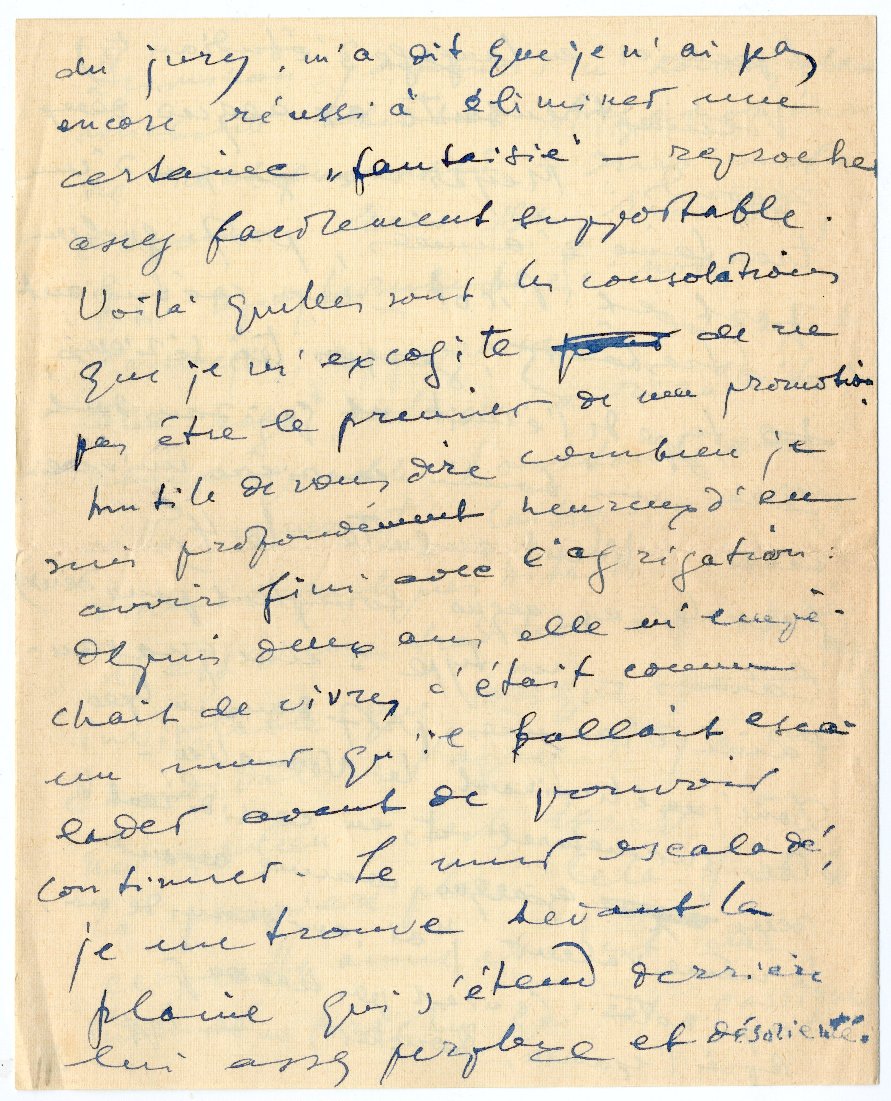 du jury, m'a dit que je n'ai pas
encore réussi à éliminer une
certaine „fantaisie" — reproche
assez facilement supportable.
Voilà quelles sont les consolations
que je m'excogite pour de ne
pas être le premier de ma promotion.
Inutile de vous dire combien je
suis profondément heureux d'en
avoir fini avec l'agrégation:
depuis deux ans elle m'empê-
chait de vivre, c'était comme
un mur qu'il fallait esca-
lader avant de pouvoir
continuer. Le mur escaladé,
je me trouve devant la
plaine qui s'étend derrière
lui assez perplexe et désorienté.